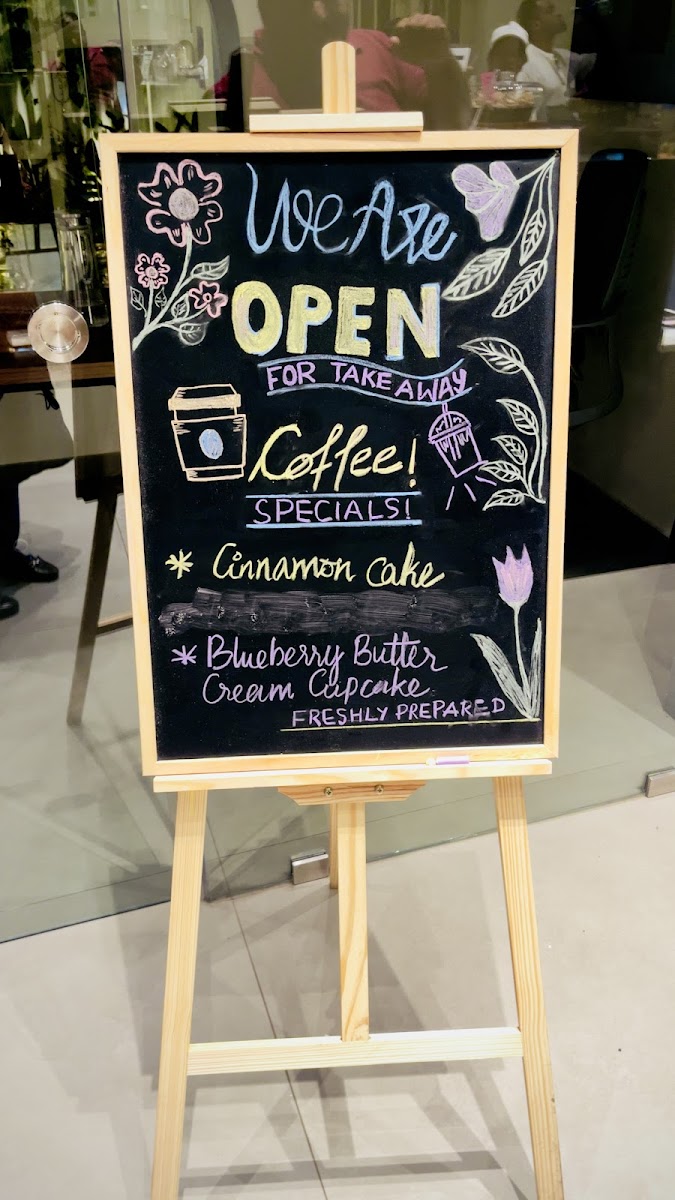 We Are
OPEN
FOR TAKEAWAY
Coffee!
SPECIALS!
* Cinnamon Cake
* Blueberry Butter
Cream Cupcake
FRESHLY PREPARED